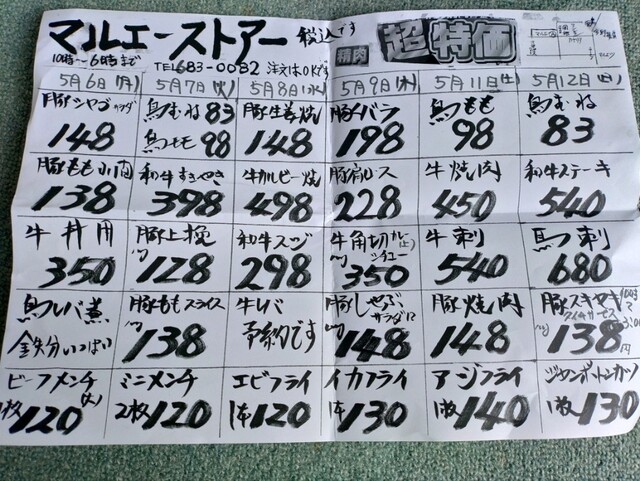 マルエーストアー 税込です
精肉 超特価
10時〜6時まで
TEL683-0082 注文はOKです
5月6日(月) 5月7日(火) 5月8日(水) 5月9日(木) 5月11日(土) 5月12日(日)
豚シャブサラダ 鳥むね83 豚生姜焼 豚バラ 鳥もも 鳥むね
148 鳥もも98 148 198 98 83
豚もも小間 和牛すきやき 牛カルビー焼 豚肩ロース 牛焼肉 和牛ステーキ
138 398 498 228 450 540
牛丼用 豚上挽 和牛スジ 牛角切カレーシチュー 牛刺 馬刺
350 128 298 350 540 680
鳥レバ煮 豚ももスライス 牛レバ 豚しゃぶサラダに 豚焼肉 豚スキヤキ
鉄分いっぱい 138 予約です 148 148 138円
ビーフメンチ(大) ミニメンチ エビフライ イカフライ アジフライ ジャンボトンカツ
1枚120 2枚120 1本120 1本130 1枚140 1枚130